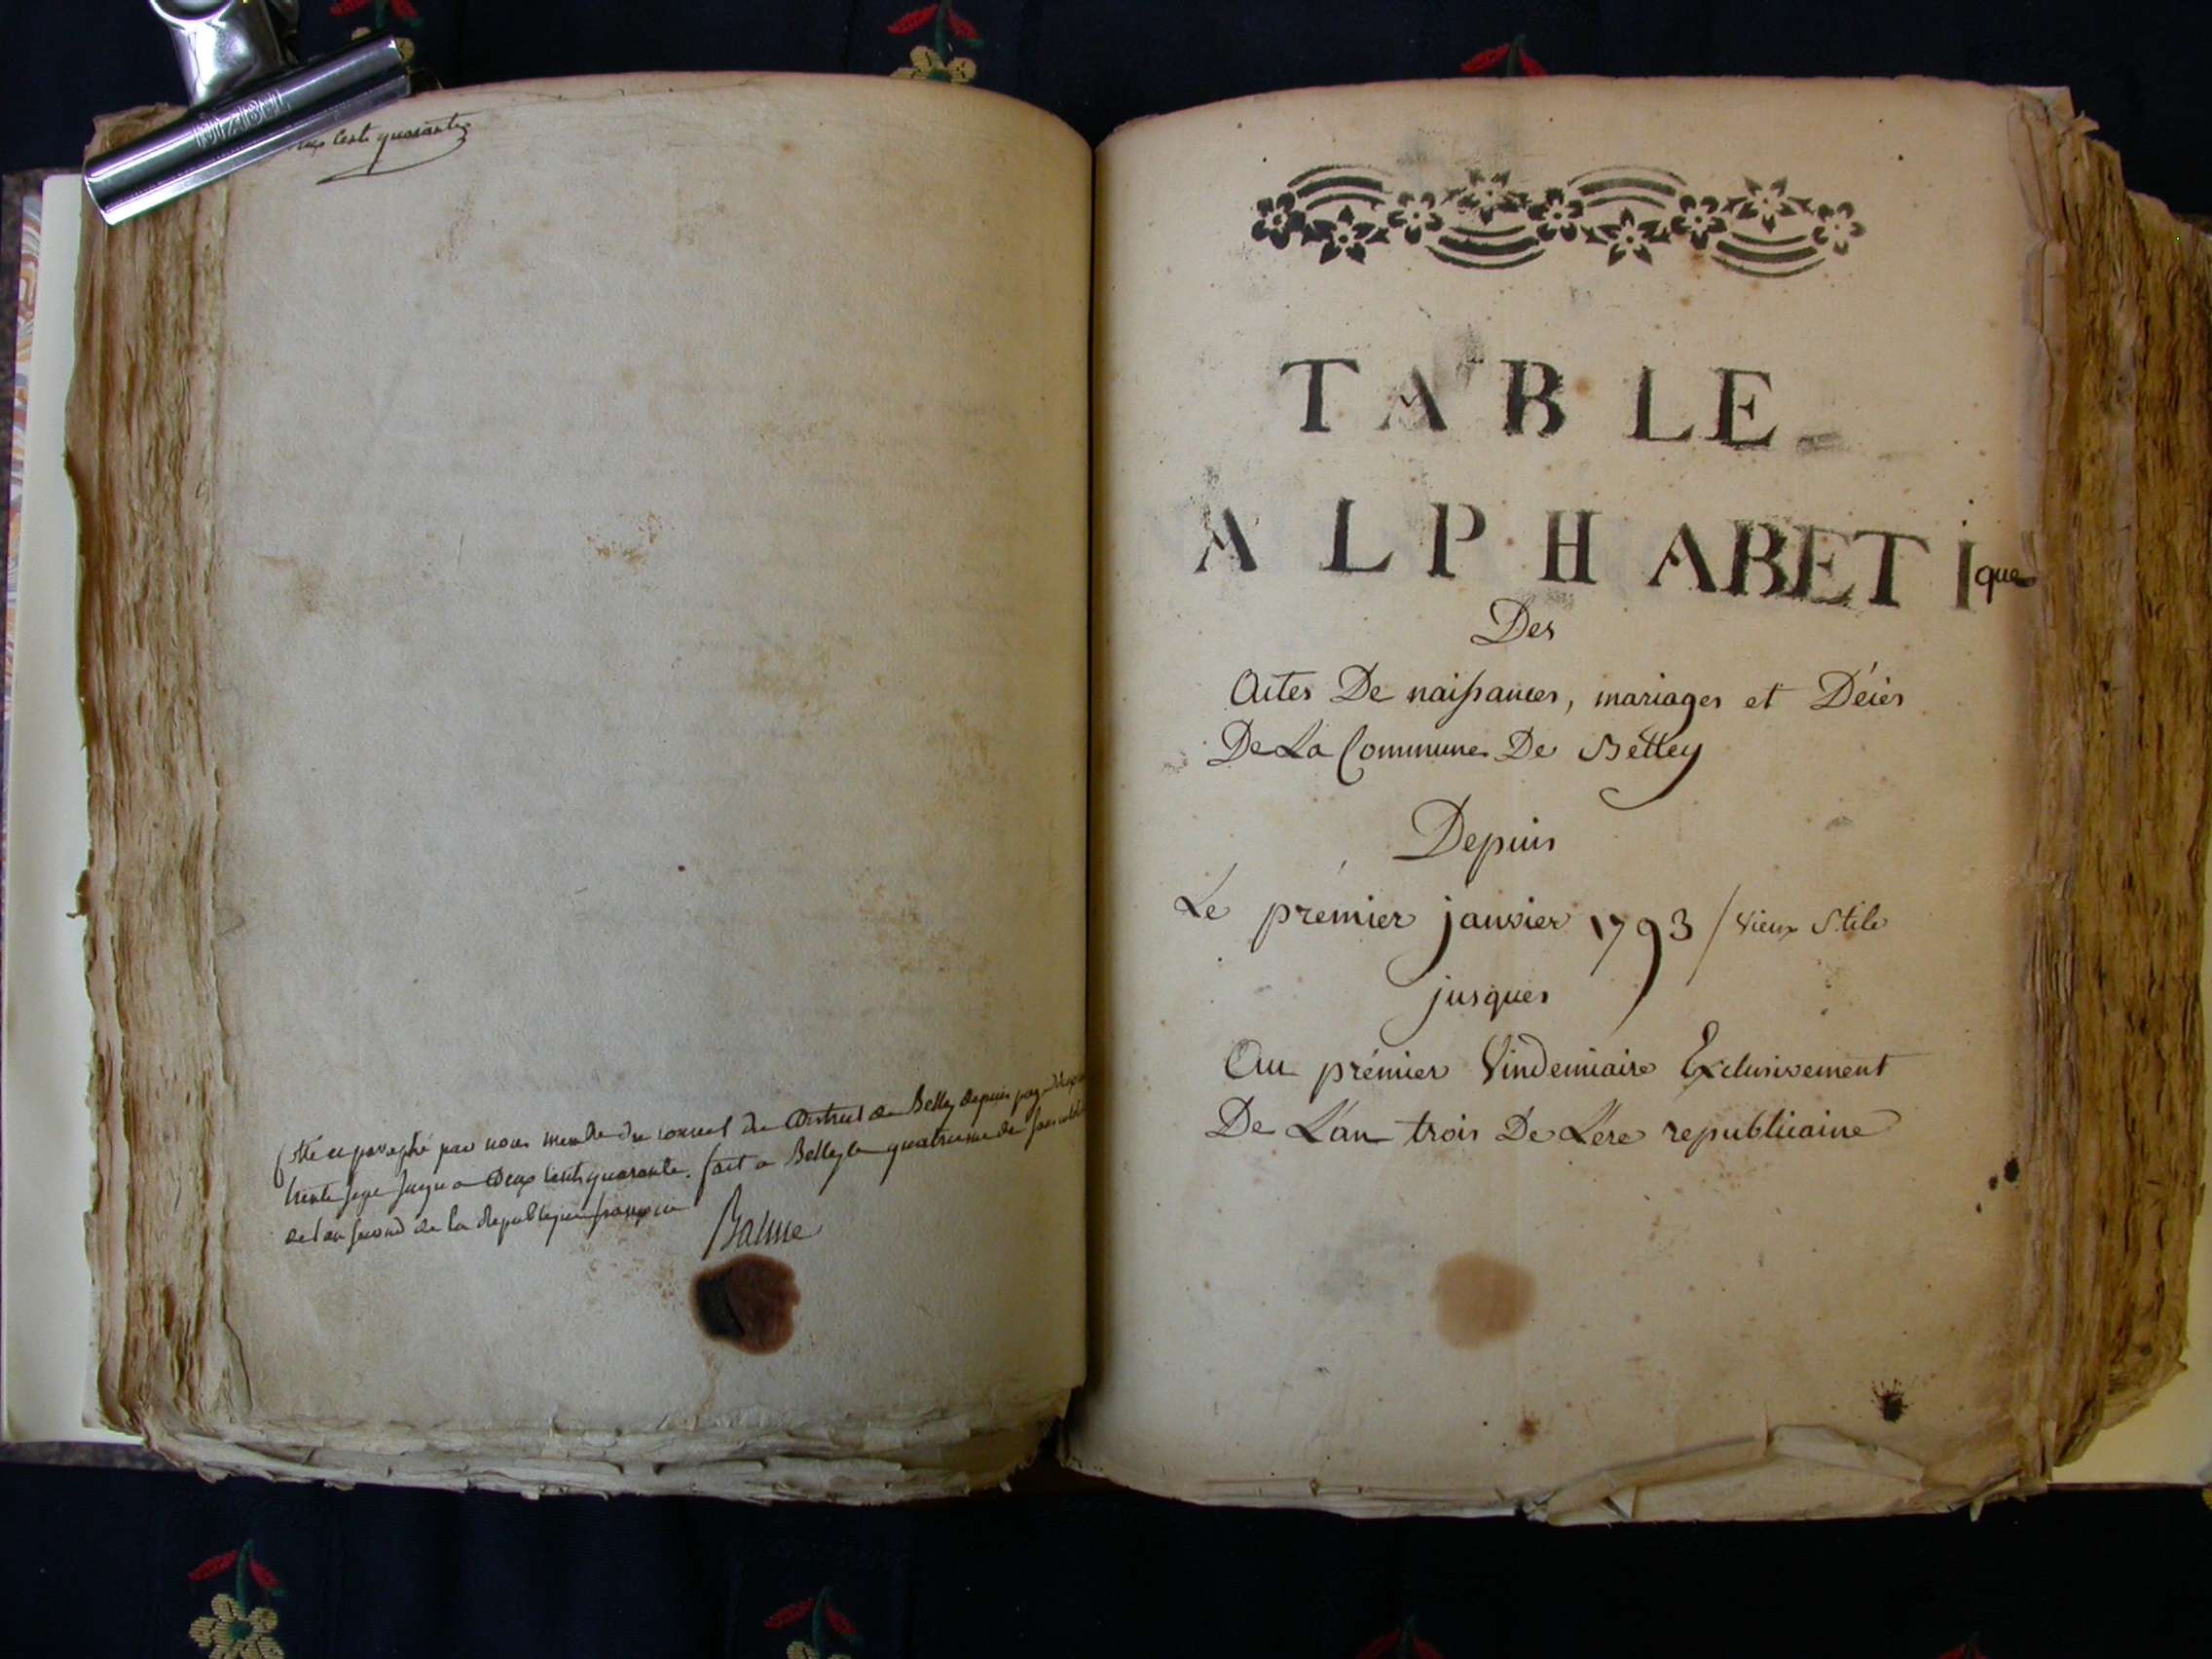 Cents quarante
Cotté et paraphé par nous membre du conseil du District de Belley depuis page
trente sept jusqu a Deux Cents quarante. fait a Belley le quatrieme de
de l'an second de la Republique françoise
Balme
TABLE
ALPHABETIque
Des
Actes De naissances, mariages et Décès
De La Commune De Belley
Depuis
Le prémier janvier 1793 / vieux Stile
jusques
Au prémier Vindemiaire Exclusivement
De L'an trois De L'ére republicaine